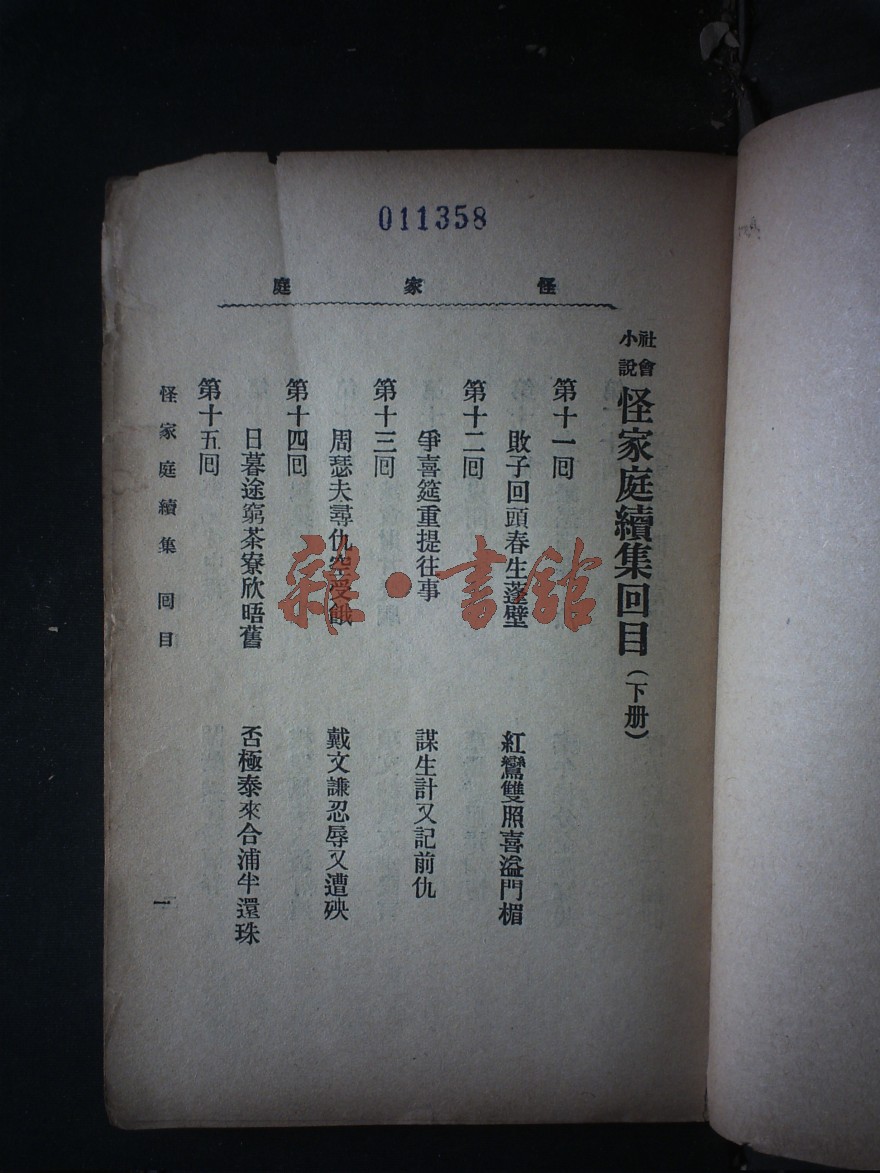 011358
怪家庭
社會小說 怪家庭續集回目(下册)
第十一回
敗子回頭春生蓬壁 紅鸞雙照喜溢門楣
第十二回
爭喜筵重提往事 謀生計又記前仇
第十三回
周瑟夫尋仇空受餓 戴文謙忍辱又遭殃
第十四回
日暮途窮茶寮欣晤舊 否極泰來合浦牛還珠
第十五回
怪家庭續集 回目
一
雜·書館